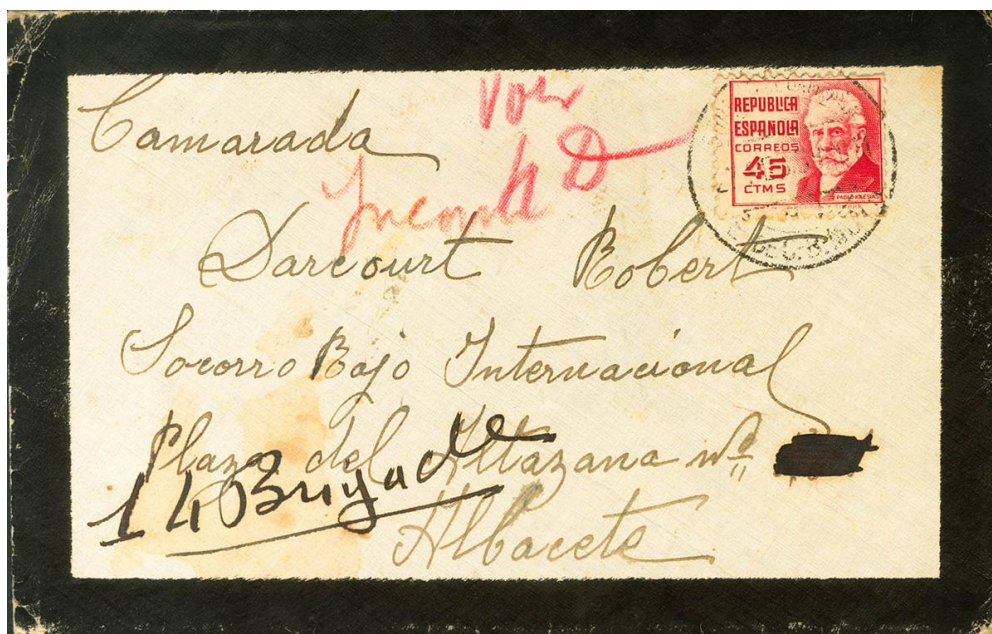 Camarada
Voir
4 D
Inconnu
REPUBLICA
ESPAÑOLA
CORREOS
45
CTMS
PABLO IGLESIAS
Darcourt Robert
Socorro Rojo Internacional
Plaza del Altazana nº
14 Brigade
Albacete